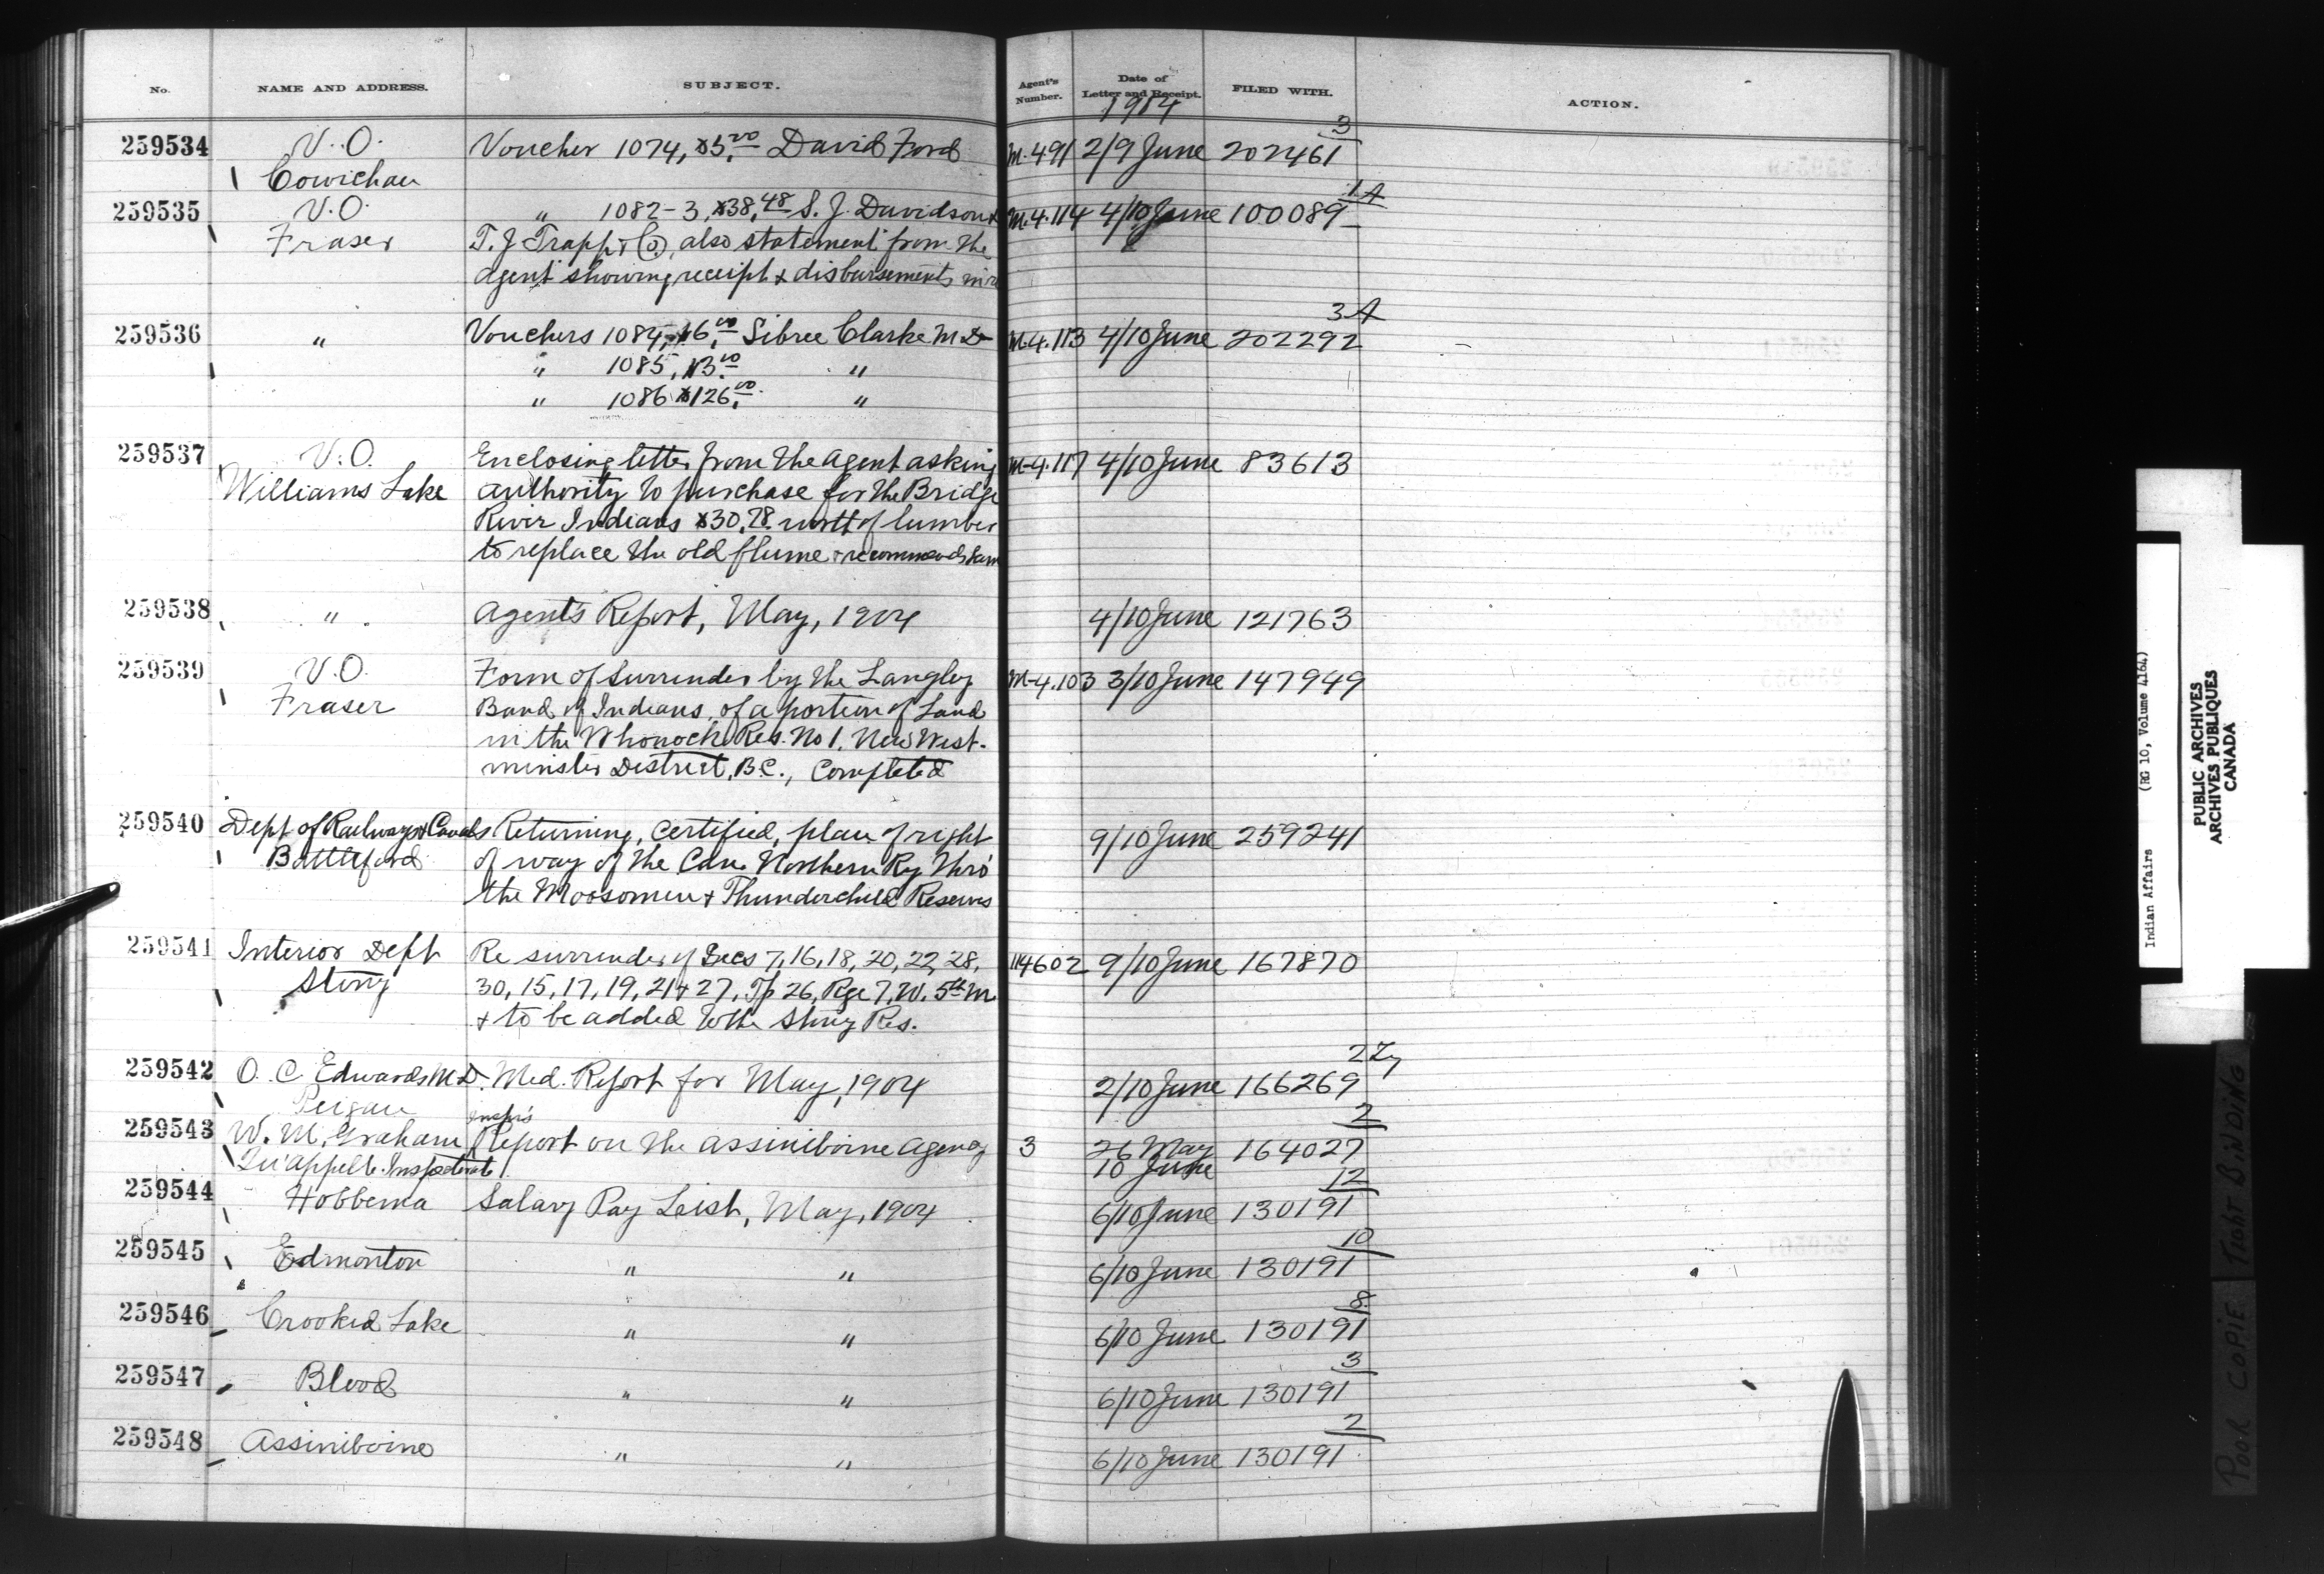 No. NAME AND ADDRESS. SUBJECT. Agent's Number. Date of Letter and Receipt. FILED WITH. ACTION.
1914
259534 V.O. Voucher 1074, $5,00 David Ford M.491 2/9 June 202461 3
Cowichan
259535 V.O. " 1082-3, $38,48 S. J. Davidson & M.4.114 4/10 June 100089 1A
Fraser T. J. Trapp & Co, also statement from the
agent showing receipt & disbursements
259536 " Vouchers 1084, $6,00 Sibree Clarke M.D. M.4.113 4/10 June 202292 3A
" 1085, $3.00 "
" 1086 $126,00 "
259537 V.O. Enclosing letter from the agent asking M-4.117 4/10 June 83613
Williams Lake authority to purchase for the Bridge
River Indians $30,78 worth of lumber
to replace the old flume & recommends same
259538 " Agent's Report, May, 1904 4/10 June 121763
259539 V.O. Form of surrender by the Langley M-4.103 3/10 June 147949
Fraser Band of Indians, of a portion of Land
in the Whonock Res. No 1, New West-
minster District, B.C., Completed
259540 Dept of Railways & Canals Returning, certified, plan of right 9/10 June 259241
Battleford of way of the Can. Northern Ry thro'
the Moosomin & Thunderchild Reserves
259541 Interior Dept Re surrender of Secs 7, 16, 18, 20, 22, 28, 114602 9/10 June 167870
Stony 30, 15, 17, 19, 21 & 27, Tp 26, Rge 7, W. 5th M
& to be added to the Stony Res.
259542 O. C. Edwards M.D. Med. Report for May, 1904 2/10 June 166269 2
Peigan
259543 W. M. Graham Inspr's Report on the Assiniboine Agency 3 26 May 164027 2
Qu'appelle Inspectorate 10 June
259544 Hobbema Salary Pay List, May, 1904 6/10 June 130191 12
259545 Edmonton " " 6/10 June 130191 10
259546 Crooked Lake " " 6/10 June 130191 8
259547 Blood " " 6/10 June 130191 3
259548 Assiniboine " " 6/10 June 130191 2
Indian Affairs (RG 10, Volume 4164)
PUBLIC ARCHIVES
ARCHIVES PUBLIQUES
CANADA
POOR COPIE TIGHT BINDING